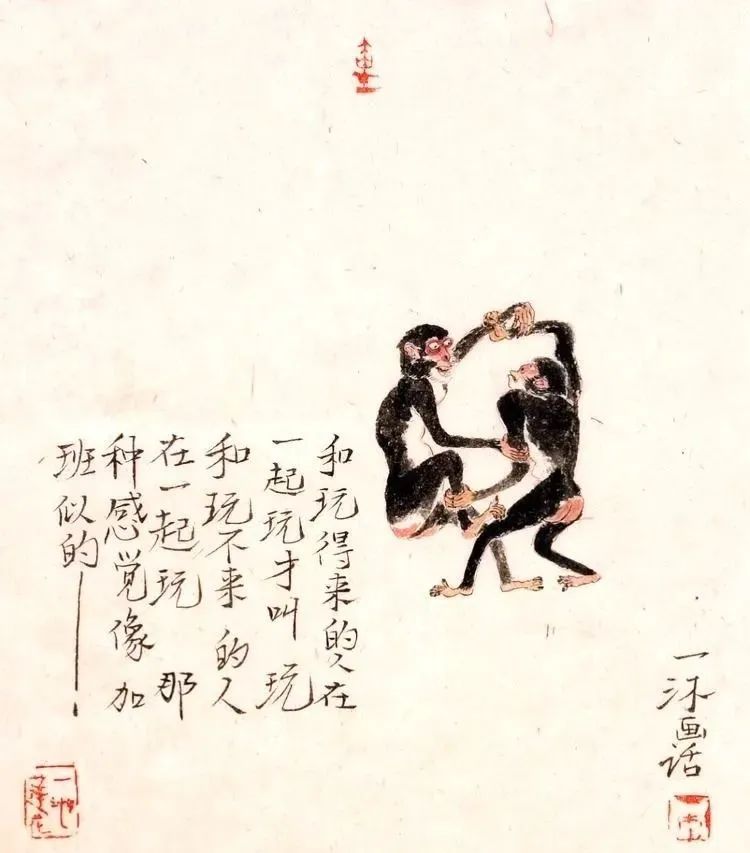 和玩得来的人在
一起玩才叫玩
和玩不来的人
在一起玩那
种感觉像加
班似的——
一沐画话